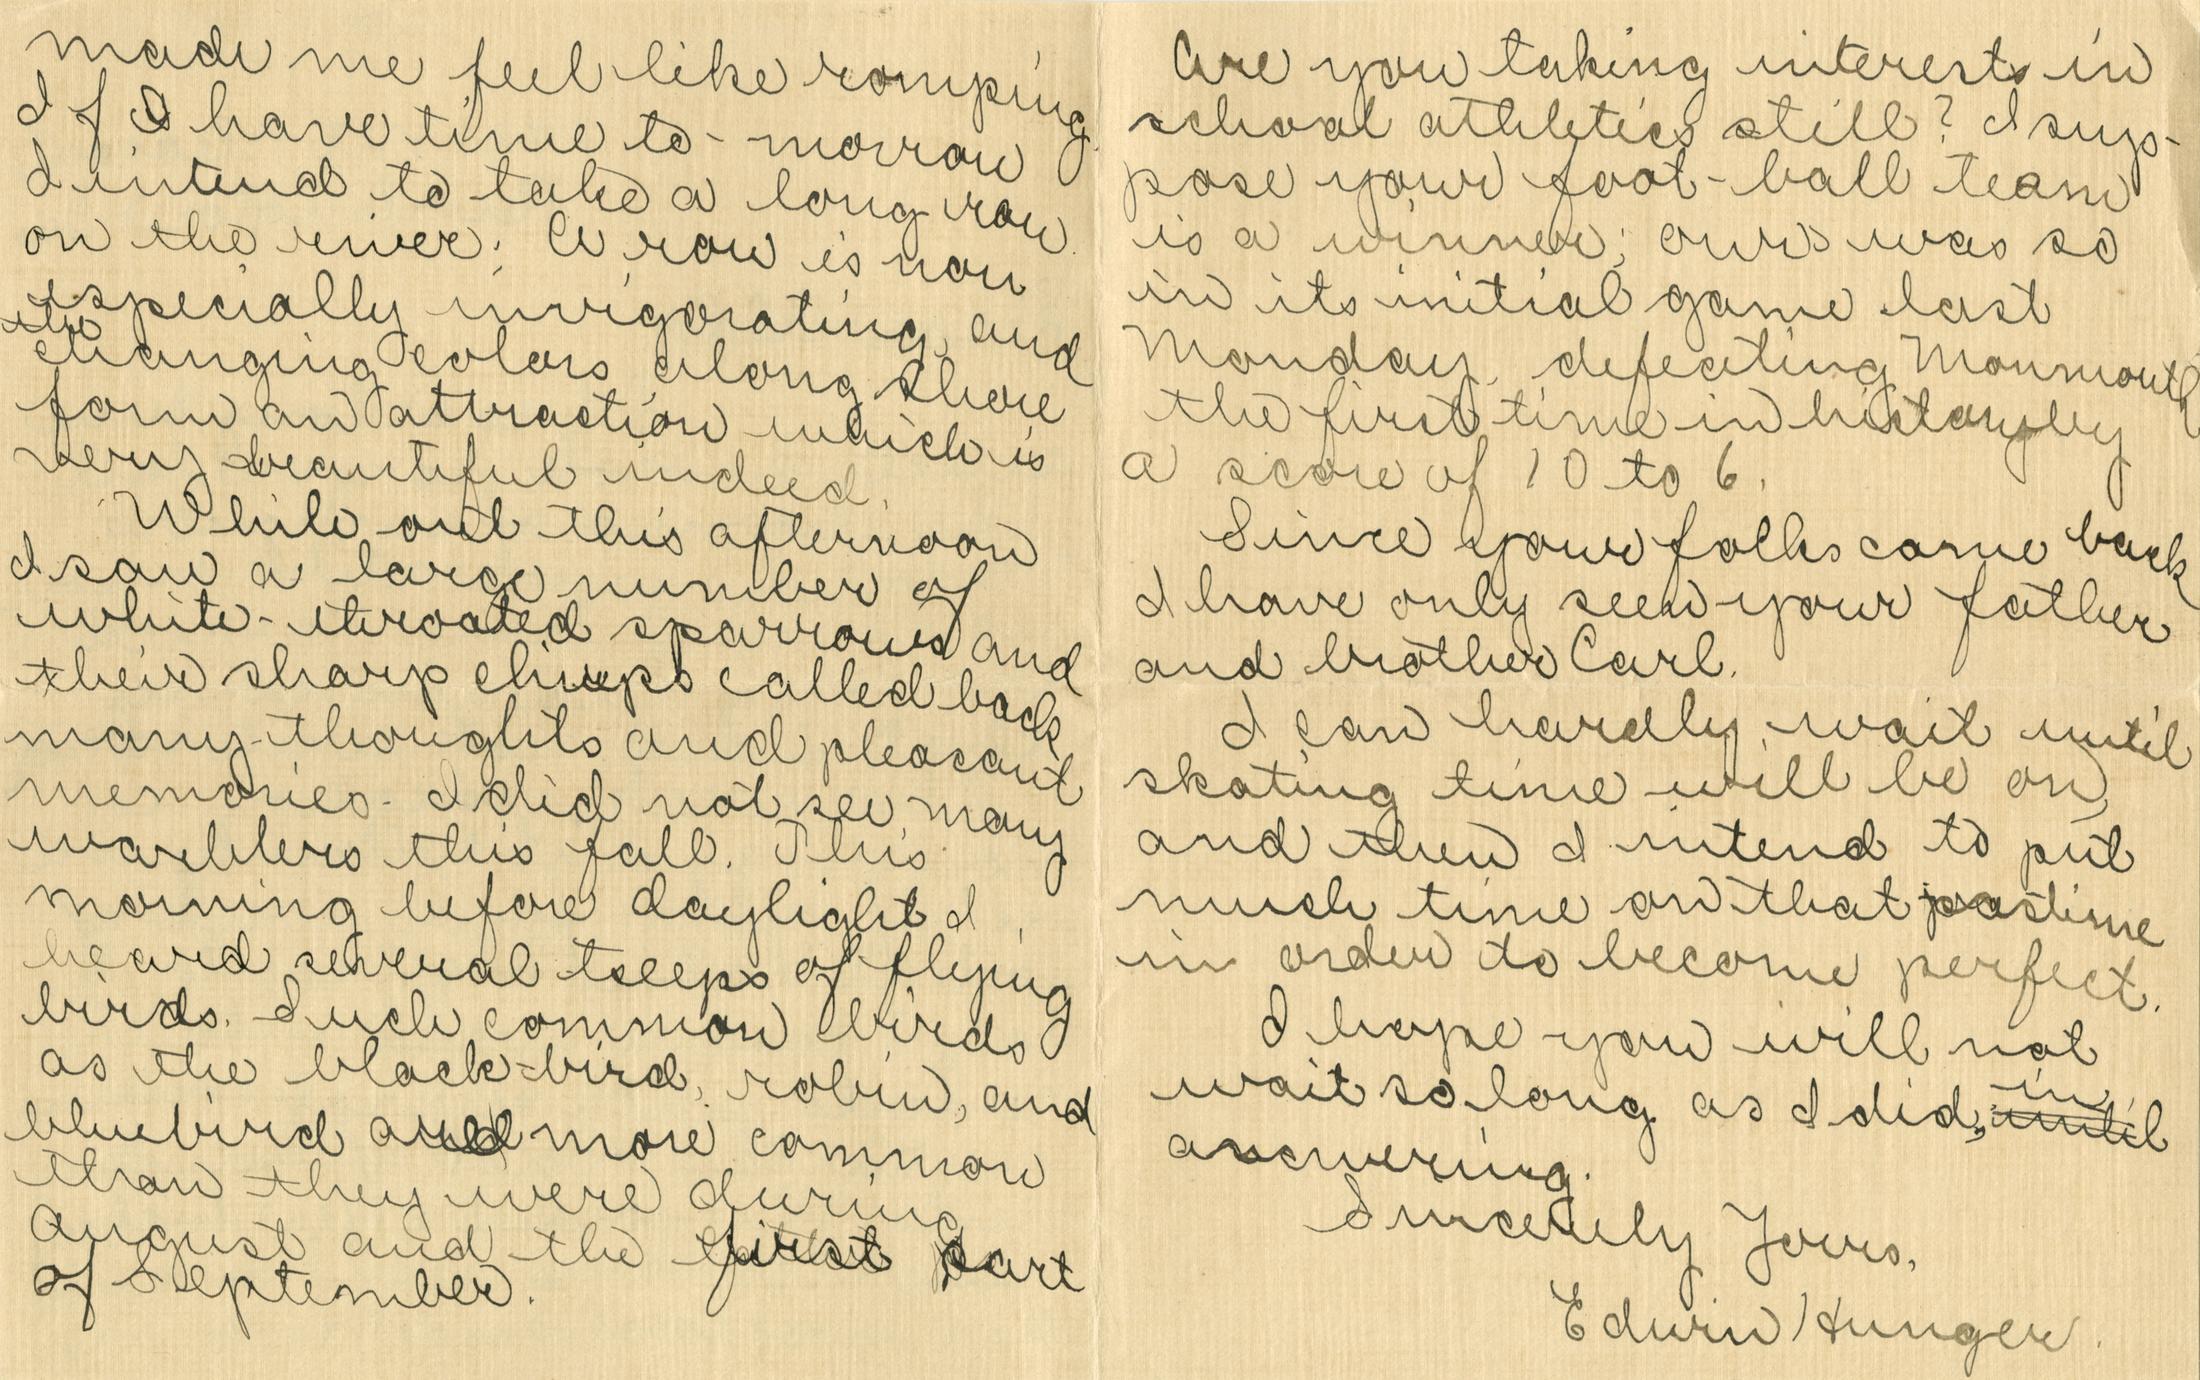 made me feel like romping.
If I have time to-morrow
I intend to take a long row
on the river; A row is now
especially invigorating, and
the
changing colors along shore
form an attraction which is
very beautiful indeed.
While out this afternoon
I saw a large number of
white-throated sparrows and
their sharp chirps called back
many thoughts and pleasant
memories. I did not see many
warblers this fall. This
morning before daylight I
heard several tseeps of flying
birds. Such common birds
as the black-bird, robin, and
bluebird are more common
than they were during
August and the first part
of September.
Are you taking interest in
school athletics still? I sup-
pose your foot-ball team
is a winner; ours was so
in its initial game last
Monday, defeating Monmouth
the first time in history by
a score of 10 to 6.
Since your folks came back
I have only seen your father
and brother Carl.
I can hardly wait until
skating time will be on,
and then I intend to put
much time on that pastime
in order to become perfect.
I hope you will not
wait so long as I did, until in
answering.
Sincerely Yours,
Edwin Hunger.